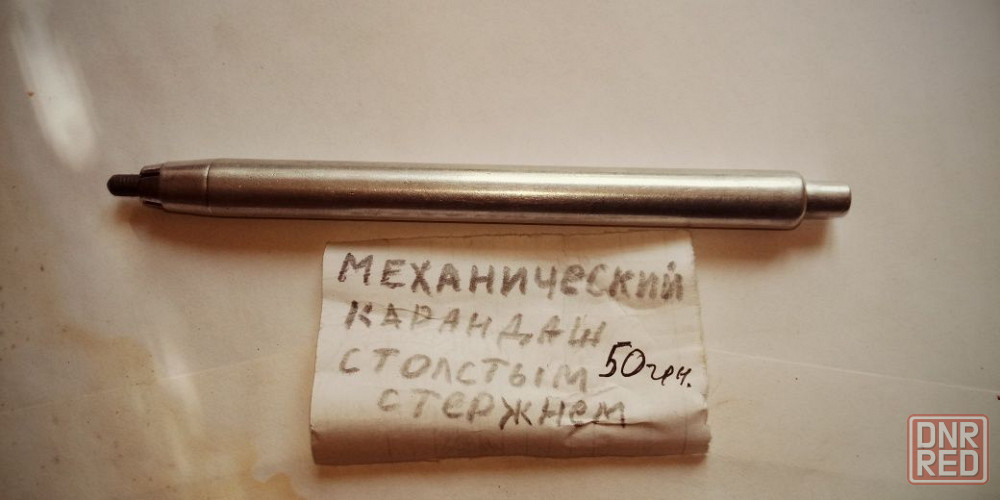 МЕХАНИЧЕСКИЙ
КАРАНДАШ
СТОЛСТЫМ 50грн.
СТЕРЖНЕМ
DNR
RED